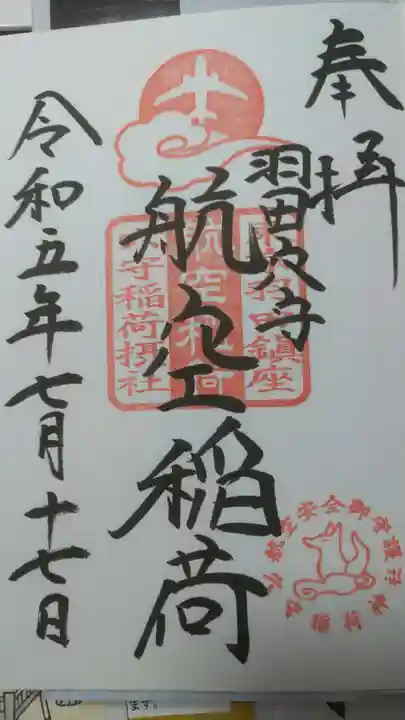 奉拝
羽田穴守
航空稲荷
令和五年七月十七日
東京羽田鎮座
航空稲荷
穴守稲荷摂社
ます。